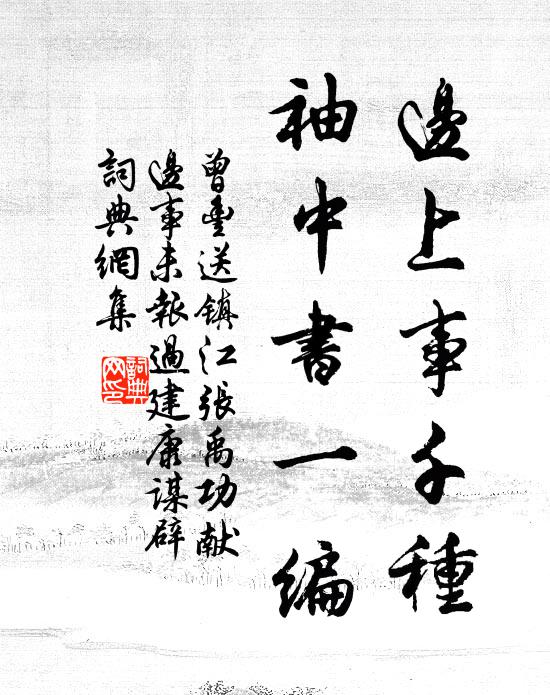 邊上事千種
袖中書一編
曾豐送镇江張禹功献
邊事未報過建康謀辟
詞典網集
詞典
网印